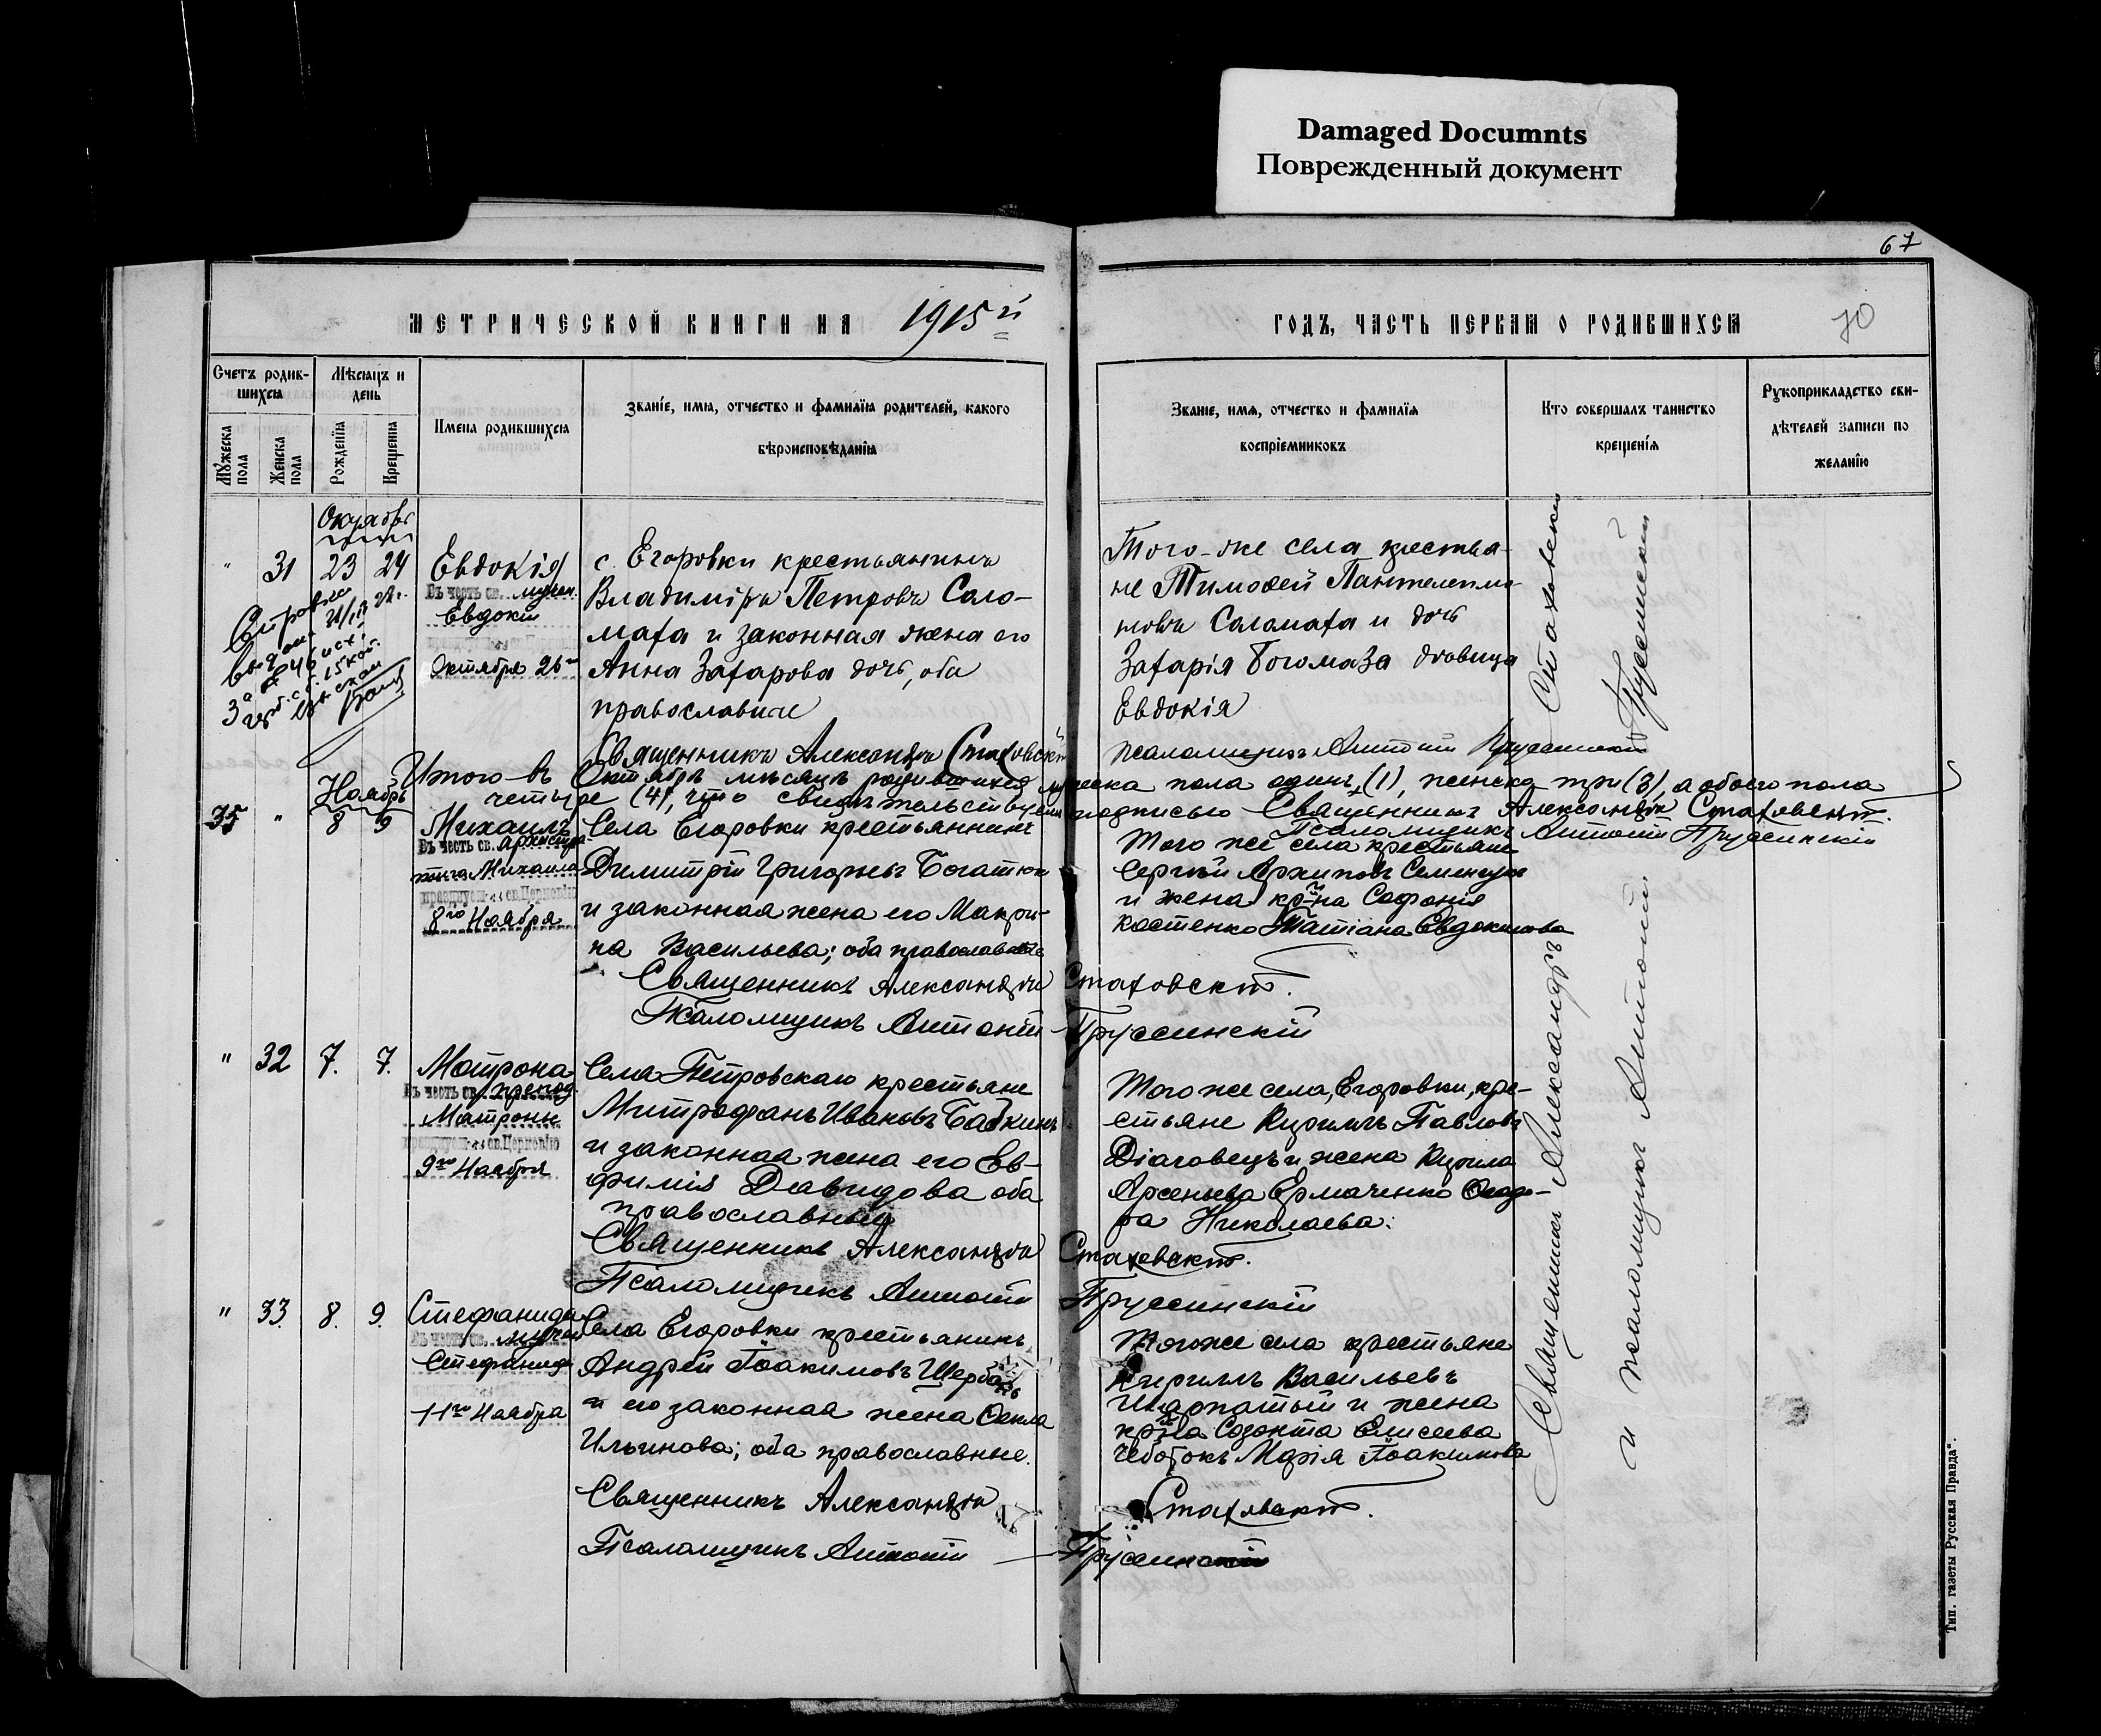 Damaged Documnts
Поврежденный документ
67
МЕТРИЧЕСКОЙ КНИГИ НА 1915й
ГОДЪ, ЧАСТЬ ПЕРВАЯ О РОДИВШИХСЯ
70
Счетъ родив-
шихся
Мужеска пола
Женска пола
Мѣсяцъ и
день
Рожденія
Крещенія
Имена родившихся
Званіе, имя, отчество и фамилія родителей, какого
вѣроисповѣданія
Званіе, имя, отчество и фамилія
воспріемниковъ
Кто совершалъ таинство
крещенія
Рукоприкладство сви-
дѣтелей записи по
желанію
Октябрь
" 31 23 24
Евдокія
Въ честь св. мучен.
Евдокіи
Октября 26го
с. Егоровки крестьянинъ
Владиміръ Петровъ Сало-
маха и законная жена его
Анна Захарова дочь, оба
православные
Того-же села крестья-
не Тимофей Пантелеимо-
новъ Саламаха и дочь
Захарія Богомаза дѣвица
Евдокія
Священникъ Александръ Стаховскій
псаломщикъ Антоній Пруссинскій
Итого въ Октябрѣ мѣсяцѣ родившихся мужеска пола одинъ (1), женска три (3), а обоего пола
четыре (4), что свидѣтельствуемъ подписью Священникъ Александръ Стаховскій.
Псаломщикъ Антоній Пруссинскій
Ноябрь
35 " 8 9
Михаилъ
Въ честь св. Архистра-
тига Михаила
празднуем св. Церковію
8го Ноября
Села Егоровки крестьянинъ
Димитрій Григорьевъ Богатюк
и законная жена его Макри-
на Васильева; оба православные
Того же села крестьяне
Сергій Архиповъ
и жена кр-на Софонія
Костенко Татіана Евдокимова
Священникъ Александръ Стаховскій.
Псаломщикъ Антоній Пруссинскій
" 32 7. 7.
Матрона
Въ честь св. препод.
Матроны
празднуем св. Церковію
9го Ноября
Села Петровскаго крестьяне
Митрофанъ Ивановъ Бабкинъ
и законная жена его Ев-
фимія Давидова оба
православные
Того же села, Егоровки, кре-
стьяне Кириллъ Павловъ
Діаговецъ и жена Кирила
Арсеньева Ермаченко Феодо-
ра Николаева.
Священникъ Александръ Стаховскій.
Псаломщикъ Антоній Пруссинскій
" 33. 8. 9.
Стефанида
Въ честь св. мучен
Стефаниды
11го Ноября
Села Егоровки крестьянинъ
Андрей Іоакимовъ
и его законная жена Фекла
Ильинова; оба православные.
Того же села крестьяне
Кириллъ Васильевъ
и жена
кр-на Созонта Елисеева
Чеботокъ Марія Іоакимова
Священникъ Александръ Стаховскій.
Псаломщикъ Антоній Пруссинскій
Священникъ Александръ Стаховскій
и псаломщикъ Антоній Пруссинскій
Тип. газеты Русская Правда".